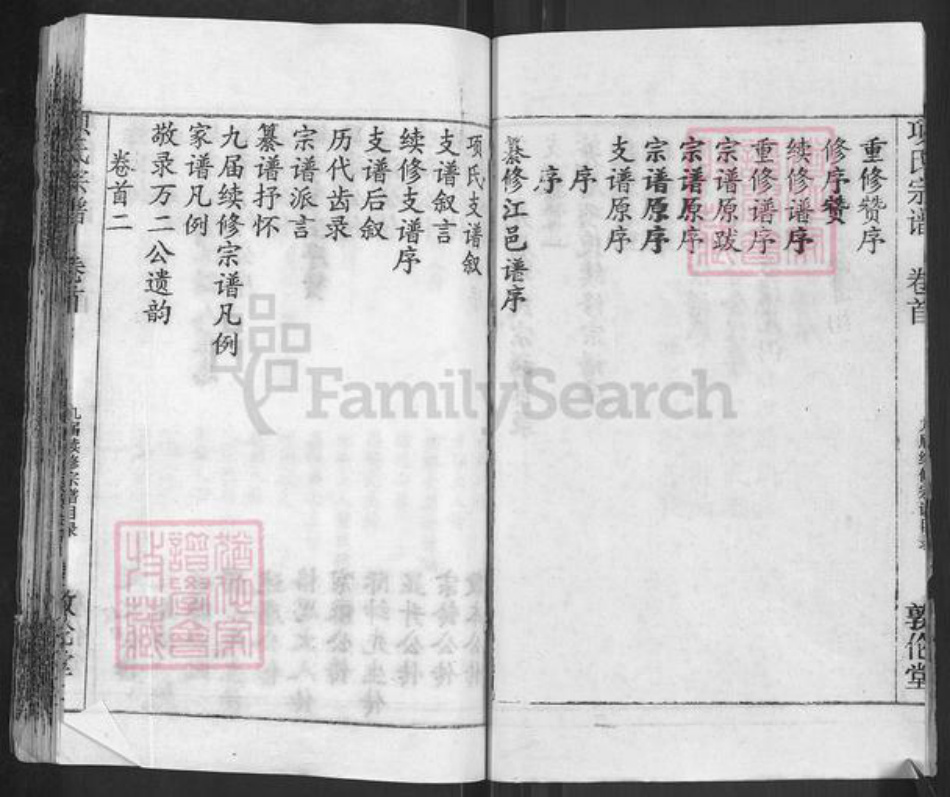 项氏宗谱 卷首
九届续修宗谱目录
敦伦堂
重修赞序
修序赞
续修谱序
重修谱序
宗谱原跋
宗谱原序
宗谱原序
支谱原序
序
序
纂修江邑谱序
项氏支谱叙
支谱叙言
续修支谱序
支谱后叙
历代齿录
宗谱派言
纂谱抒怀
九届续修宗谱凡例
家谱凡例
敬录万二公遗韵
卷首二
宗谱 卷首
九届续修宗谱目录
FamilySearch